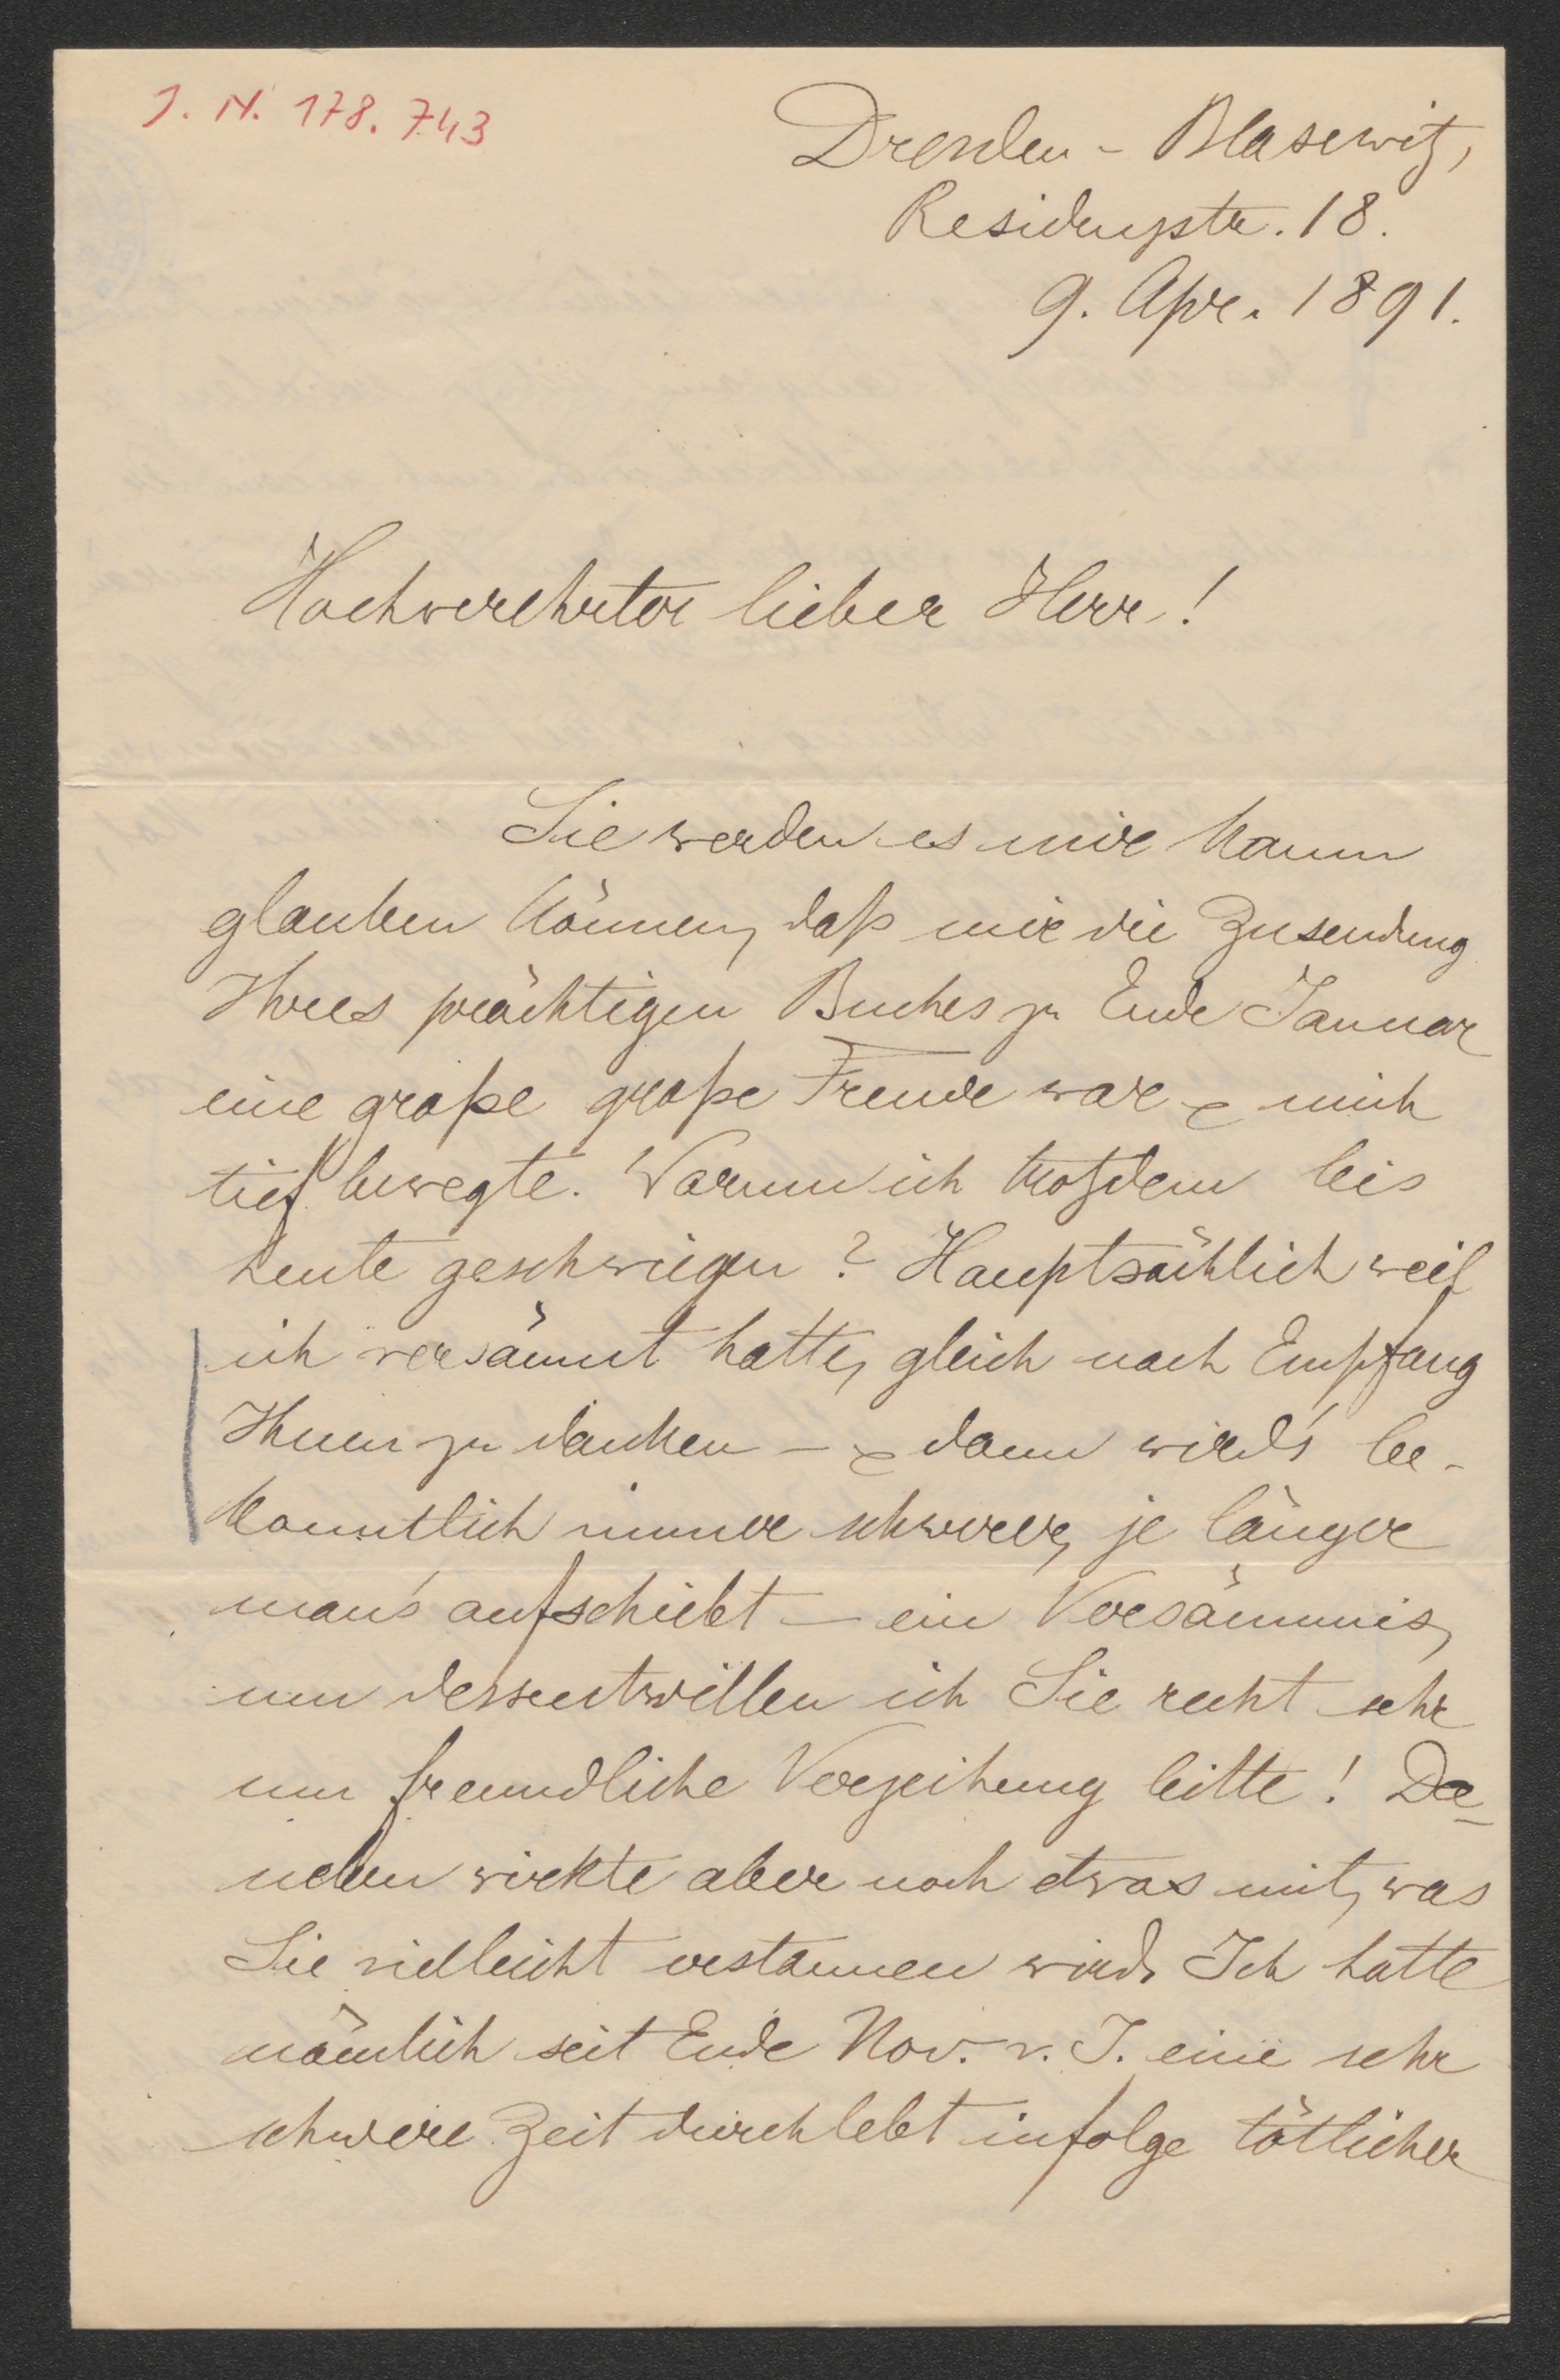 J. N. 178.743
Dresden - Blasewitz,
Residenzstr. 18.
9. Apr. 1891.
Hochverehrter lieber Herr!
Sie werden es mir kaum
glauben können, daß mir die Zusendung
Ihres prächtigen Buches zu Ende Januar
eine große große Freude war & mich
tief bewegte. Warum ich trotzdem bis
heute geschwiegen? Hauptsächlich weil
ich versäumt hatte, gleich nach Empfang
Ihnen zu danken - & dann wird's be-
kanntlich immer schwerer, je länger
man's aufschiebt - ein Versäumnis,
um dessentwillen ich Sie recht sehr
um freundliche Verzeihung bitte! Da-
neben wirkte aber noch etwas mit, was
Sie vielleicht erstaunen wird. Ich hatte
nämlich seit Ende Nov. v. J. eine sehr
schwere Zeit durchlebt infolge tötlicher